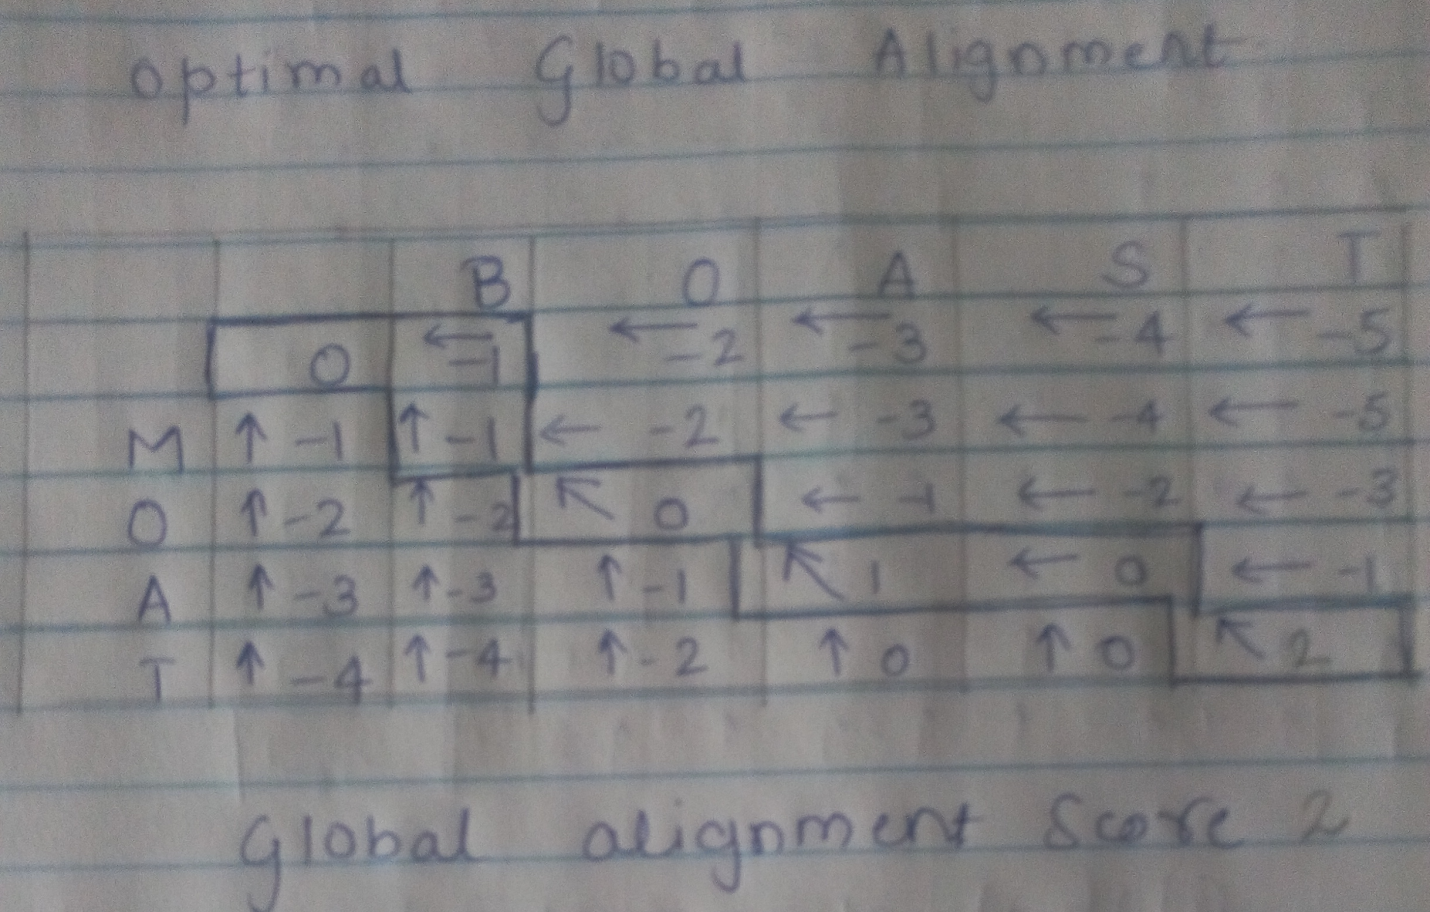 Optimal Global Alignment
B O A S T
0 ← -1 ← -2 ← -3 ← -4 ← -5
M ↑ -1 ↑ -1 ← -2 ← -3 ← -4 ← -5
O ↑ -2 ↑ -2 ↖ 0 ← -1 ← -2 ← -3
A ↑ -3 ↑ -3 ↑ -1 ↖ 1 ← 0 ← -1
T ↑ -4 ↑ -4 ↑ -2 ↑ 0 ↑ 0 ↖ 2
Global alignment Score 2